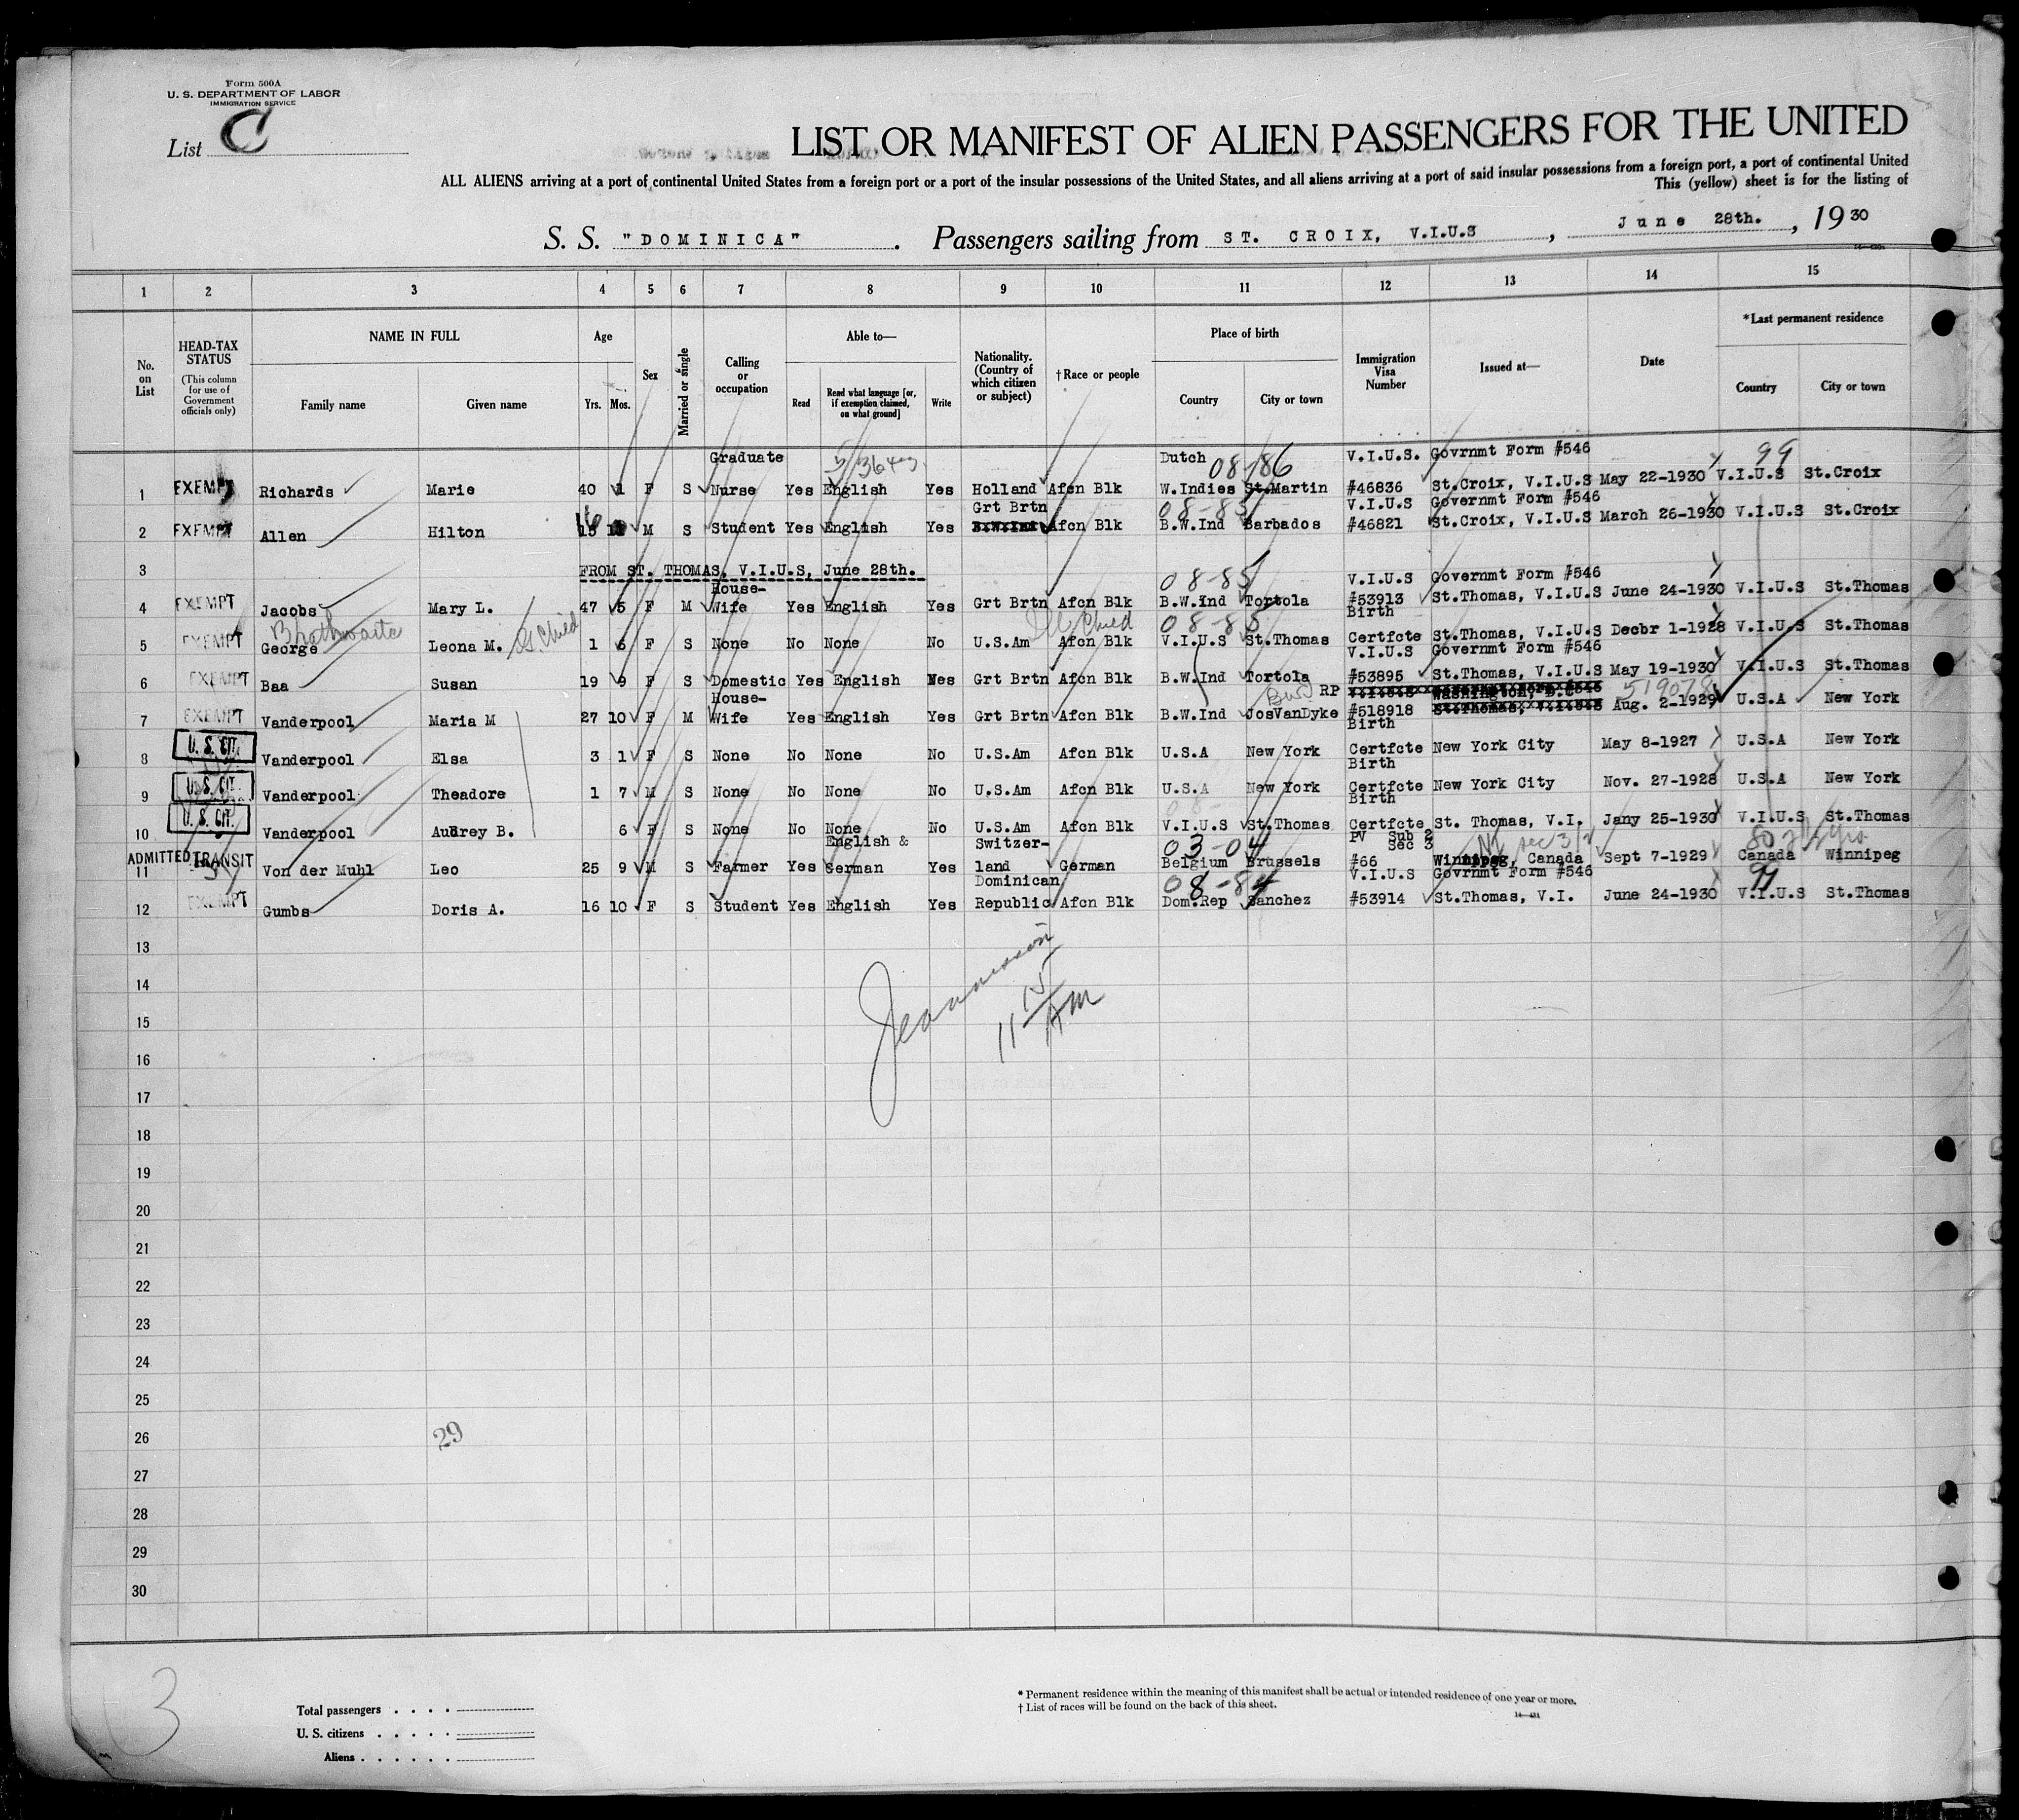 Form 500A
U. S. DEPARTMENT OF LABOR
IMMIGRATION SERVICE
List C
LIST OR MANIFEST OF ALIEN PASSENGERS FOR THE UNITED
ALL ALIENS arriving at a port of continental United States from a foreign port or a port of the insular possessions of the United States, and all aliens arriving at a port of said insular possessions from a foreign port, a port of continental United
This (yellow) sheet is for the listing of
S. S. "DOMINICA" . Passengers sailing from ST. CROIX, V.I.U.S , June 28th. , 1930
1 2 3 4 5 6 7 8 9 10 11 12 13 14 15
No. on List
HEAD-TAX STATUS (This column for use of Government officials only)
NAME IN FULL
Family name Given name
Age
Yrs. Mos.
Sex
Married or single
Calling or occupation
Able to—
Read Read what language [or, if exemption claimed, on what ground] Write
Nationality. (Country of which citizen or subject)
†Race or people
Place of birth
Country City or town
Immigration Visa Number
Issued at—
Date
*Last permanent residence
Country City or town
Graduate Dutch 08-86 V.I.U.S. Govrnmt Form #546 99
1 EXEMPT Richards Marie 40 1 F S Nurse Yes English Yes Holland Afcn Blk W.Indies St.Martin #46836 St.Croix, V.I.U.S May 22-1930 V.I.U.S St.Croix
Grt Brtn 08-85 V.I.U.S Governmt Form #546
2 EXEMPT Allen Hilton 16 M S Student Yes English Yes Afcn Blk B.W.Ind Barbados #46821 St.Croix, V.I.U.S March 26-1930 V.I.U.S St.Croix
3 FROM ST. THOMAS, V.I.U.S, June 28th.
House- 08-85 V.I.U.S Governmt Form #546
4 EXEMPT Jacobs Mary L. 47 5 F M Wife Yes English Yes Grt Brtn Afcn Blk B.W.Ind Tortola #53913 St.Thomas, V.I.U.S June 24-1930 V.I.U.S St.Thomas
Brathwaite G. Child Ill Child 08-85 Birth
5 EXEMPT George Leona M. 1 6 F S None No None No U.S.Am Afcn Blk V.I.U.S St.Thomas Certfcte St.Thomas, V.I.U.S Decbr 1-1928 V.I.U.S St.Thomas
V.I.U.S Governmt Form #546
6 EXEMPT Baa Susan 19 9 F S Domestic Yes English Yes Grt Brtn Afcn Blk B.W.Ind Tortola #53895 St.Thomas, V.I.U.S May 19-1930 V.I.U.S St.Thomas
House- RP Washington, D.C
7 EXEMPT Vanderpool Maria M 27 10 F M Wife Yes English Yes Grt Brtn Afcn Blk B.W.Ind JosVanDyke #518918 Aug. 2-1929 U.S.A New York
Birth
8 U. S. CIT. Vanderpool Elsa 3 1 F S None No None No U.S.Am Afcn Blk U.S.A New York Certfcte New York City May 8-1927 U.S.A New York
Birth
9 U. S. CIT. Vanderpool Theadore 1 7 M S None No None No U.S.Am Afcn Blk U.S.A New York Certfcte New York City Nov. 27-1928 U.S.A New York
Birth
10 U. S. CIT. Vanderpool Audrey B. 6 F S None No None No U.S.Am Afcn Blk V.I.U.S St.Thomas Certfcte St. Thomas, V.I. Jany 25-1930 V.I.U.S St.Thomas
English & Switzer- 03-04 PV Sub 2 Sec 3
ADMITTED TRANSIT
11 Von der Muhl Leo 25 9 M S Farmer Yes German Yes land German Belgium Brussels #66 Winnipeg, Canada Sept 7-1929 Canada Winnipeg
Dominican 08-84 V.I.U.S Govrnmt Form #546 99
12 EXEMPT Gumbs Doris A. 16 10 F S Student Yes English Yes Republic Afcn Blk Dom.Rep Sanchez #53914 St.Thomas, V.I. June 24-1930 V.I.U.S St.Thomas
13
14
15
11 15 AM
16
17
18
19
20
21
22
23
24
25
26 29
27
28
29
30
3
Total passengers . . . .
U. S. citizens . . . . .
Aliens . . . . . .
* Permanent residence within the meaning of this manifest shall be actual or intended residence of one year or more.
† List of races will be found on the back of this sheet.